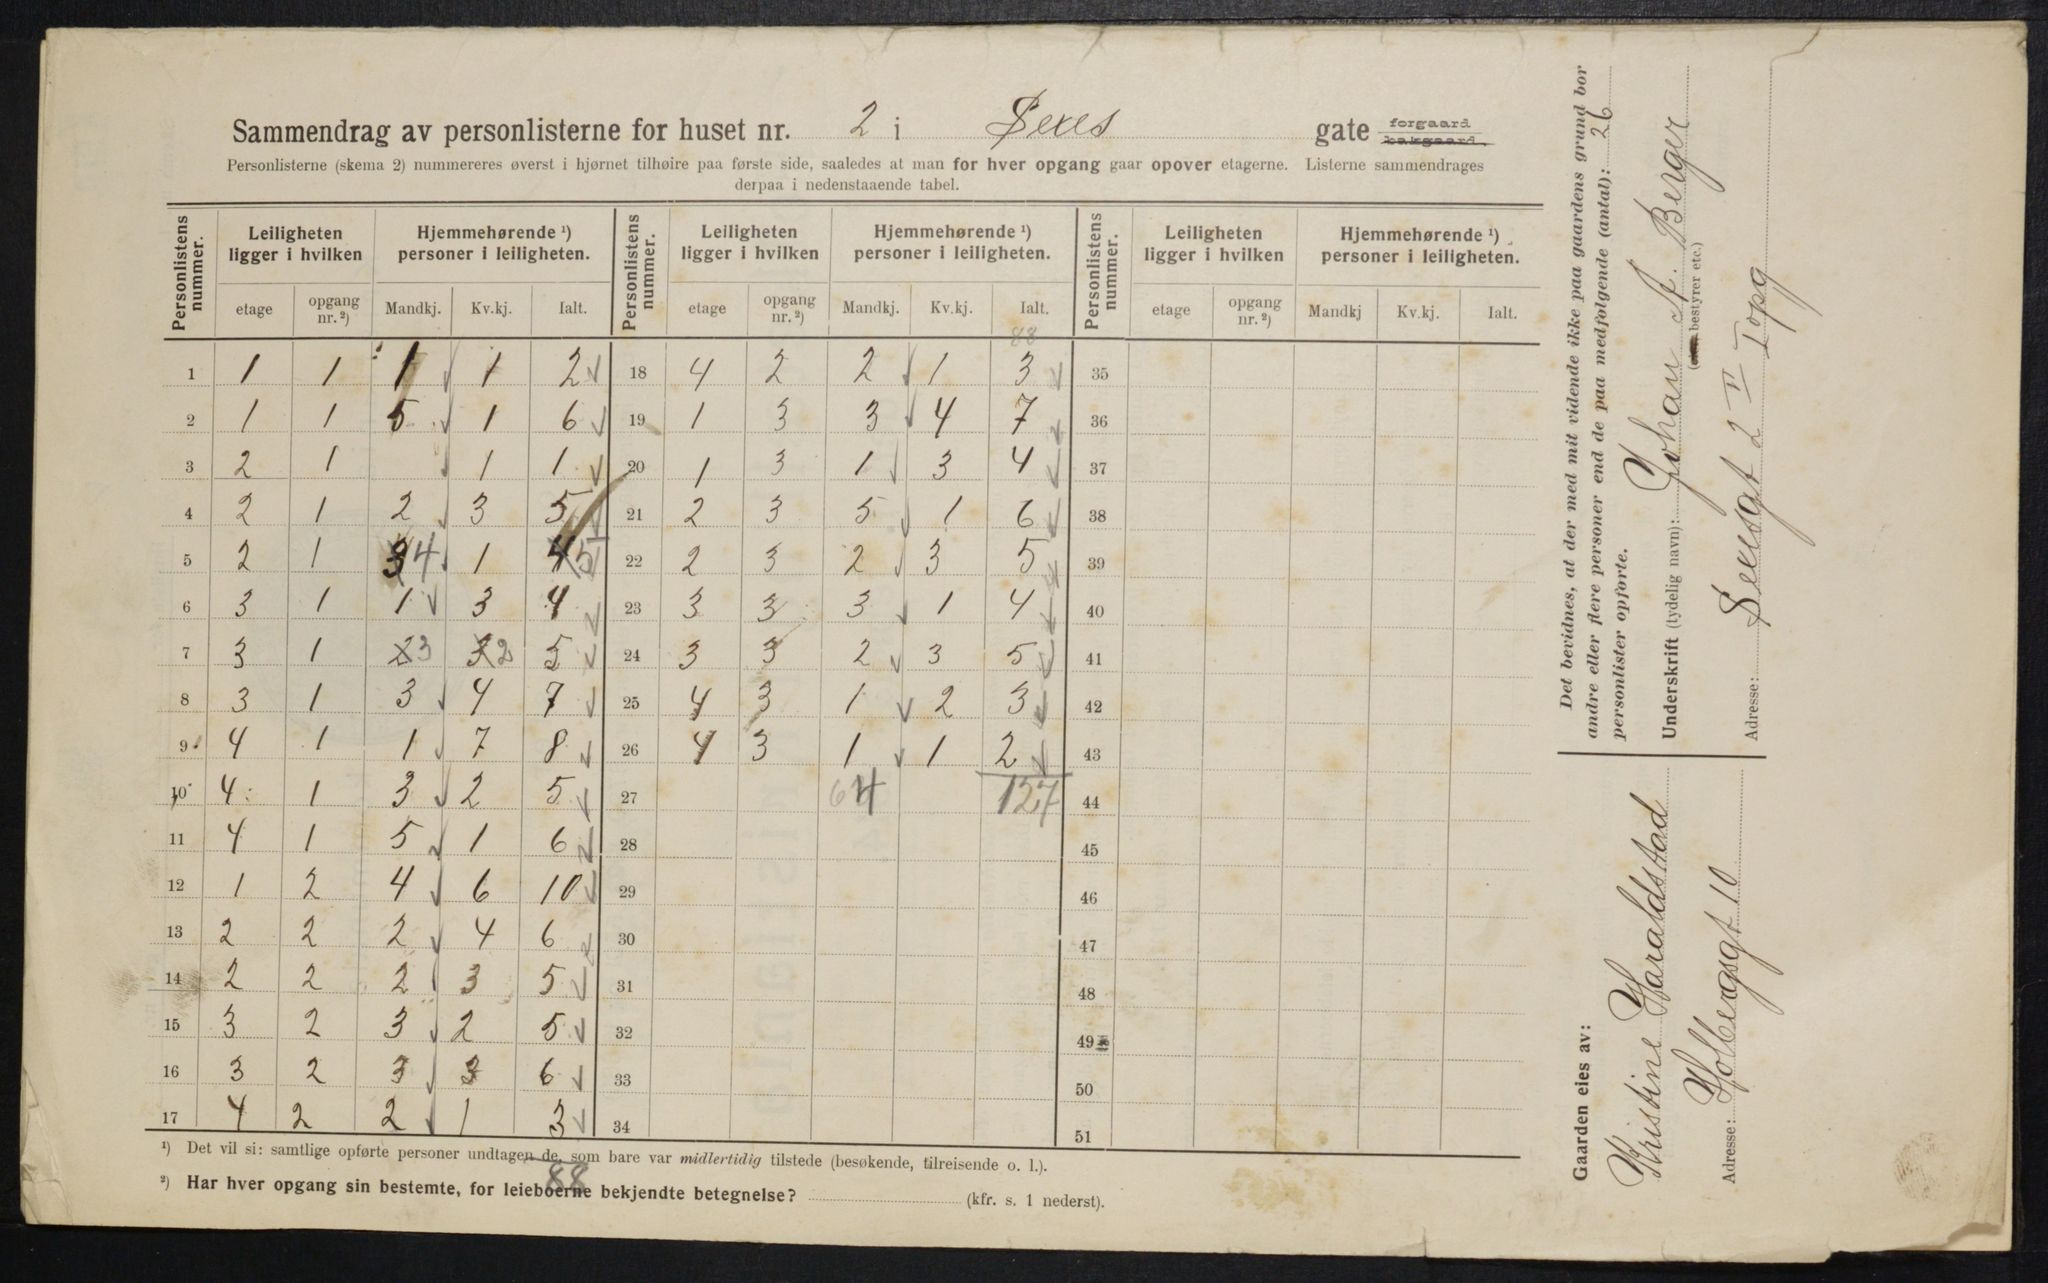 Sammendrag av personlisterne for huset nr. 2 i Sexes gate forgaard bakgaard.
Personlisterne (skema 2) nummereres øverst i hjørnet tilhøire paa første side, saaledes at man for hver opgang gaar opover etagerne. Listerne sammendrages
derpaa i nedenstaaende tabel.
Personlistens nummer. Leiligheten ligger i hvilken Hjemmehørende ¹) personer i leiligheten. Personlistens nummer. Leiligheten ligger i hvilken Hjemmehørende ¹) personer i leiligheten. Personlistens nummer. Leiligheten ligger i hvilken Hjemmehørende ¹) personer i leiligheten.
etage opgang nr. ²) Mandkj. Kv.kj. Ialt. etage opgang nr. ²) Mandkj. Kv.kj. Ialt. etage opgang nr. ²) Mandkj Kv.kj. Ialt.
88
1 1 1 1 1 2 18 4 2 2 1 3 35
2 1 1 5 1 6 19 1 3 3 4 7 36
3 2 1 1 1 20 1 3 1 3 4 37
4 2 1 2 3 5 21 2 3 5 1 6 38
5 2 1 3 4 1 4 5 22 2 3 2 3 5 39
6 3 1 1 3 4 23 3 3 3 1 4 40
7 3 1 2 3 3 2 5 24 3 3 2 3 5 41
8 3 1 3 4 7 25 4 3 1 2 3 42
9 4 1 1 7 8 26 4 3 1 1 2 43
10 4 1 3 2 5 27 64 127 44
11 4 1 5 1 6 28 45
12 1 2 4 6 10 29 46
13 2 2 2 4 6 30 47
14 2 2 2 3 5 31 48
15 3 2 3 2 5 32 49
16 3 2 3 3 6 33 50
17 4 2 2 1 3 34 51
¹) Det vil si: samtlige opførte personer undtagen de, som bare var midlertidig tilstede (besøkende, tilreisende o. l.).
88
²) Har hver opgang sin bestemte, for leieboerne bekjendte betegnelse? (kfr. s. 1 nederst).
Det bevidnes, at der med mit vidende ikke paa gaardens grund bor
andre eller flere personer end de paa medfølgende (antal): 26
personlister opførte.
Underskrift (tydelig navn): Johan St. Berger
(bestyrer etc.)
Adresse: Sexesgt 2 V I opg
Gaarden eies av:
Kristine Haraldstad
Adresse: Holbergsgt 10